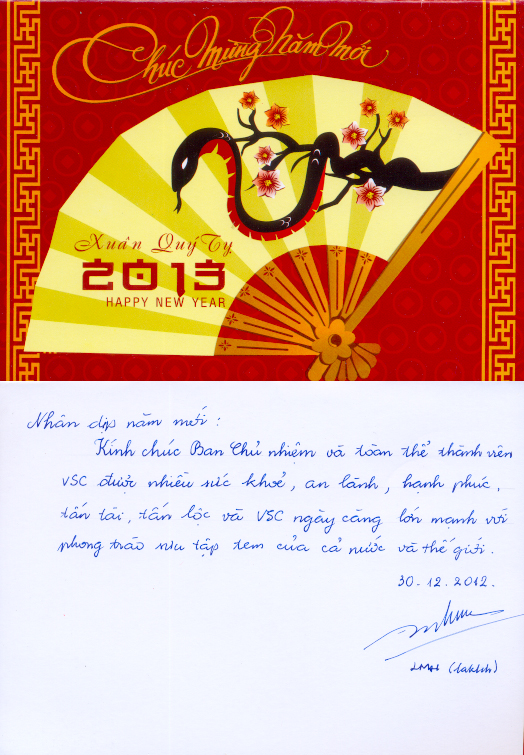 Chúc Mừng Năm Mới
Xuân Quý Tỵ
2013
HAPPY NEW YEAR
Nhân dịp năm mới :
Kính chúc Ban Chủ nhiệm và toàn thể thành viên
VSC được nhiều sức khoẻ, an lành, hạnh phúc,
tấn tài, tấn lộc và VSC ngày càng lớn mạnh với
phong trào sưu tập tem của cả nước và thế giới.
30-12-2012.